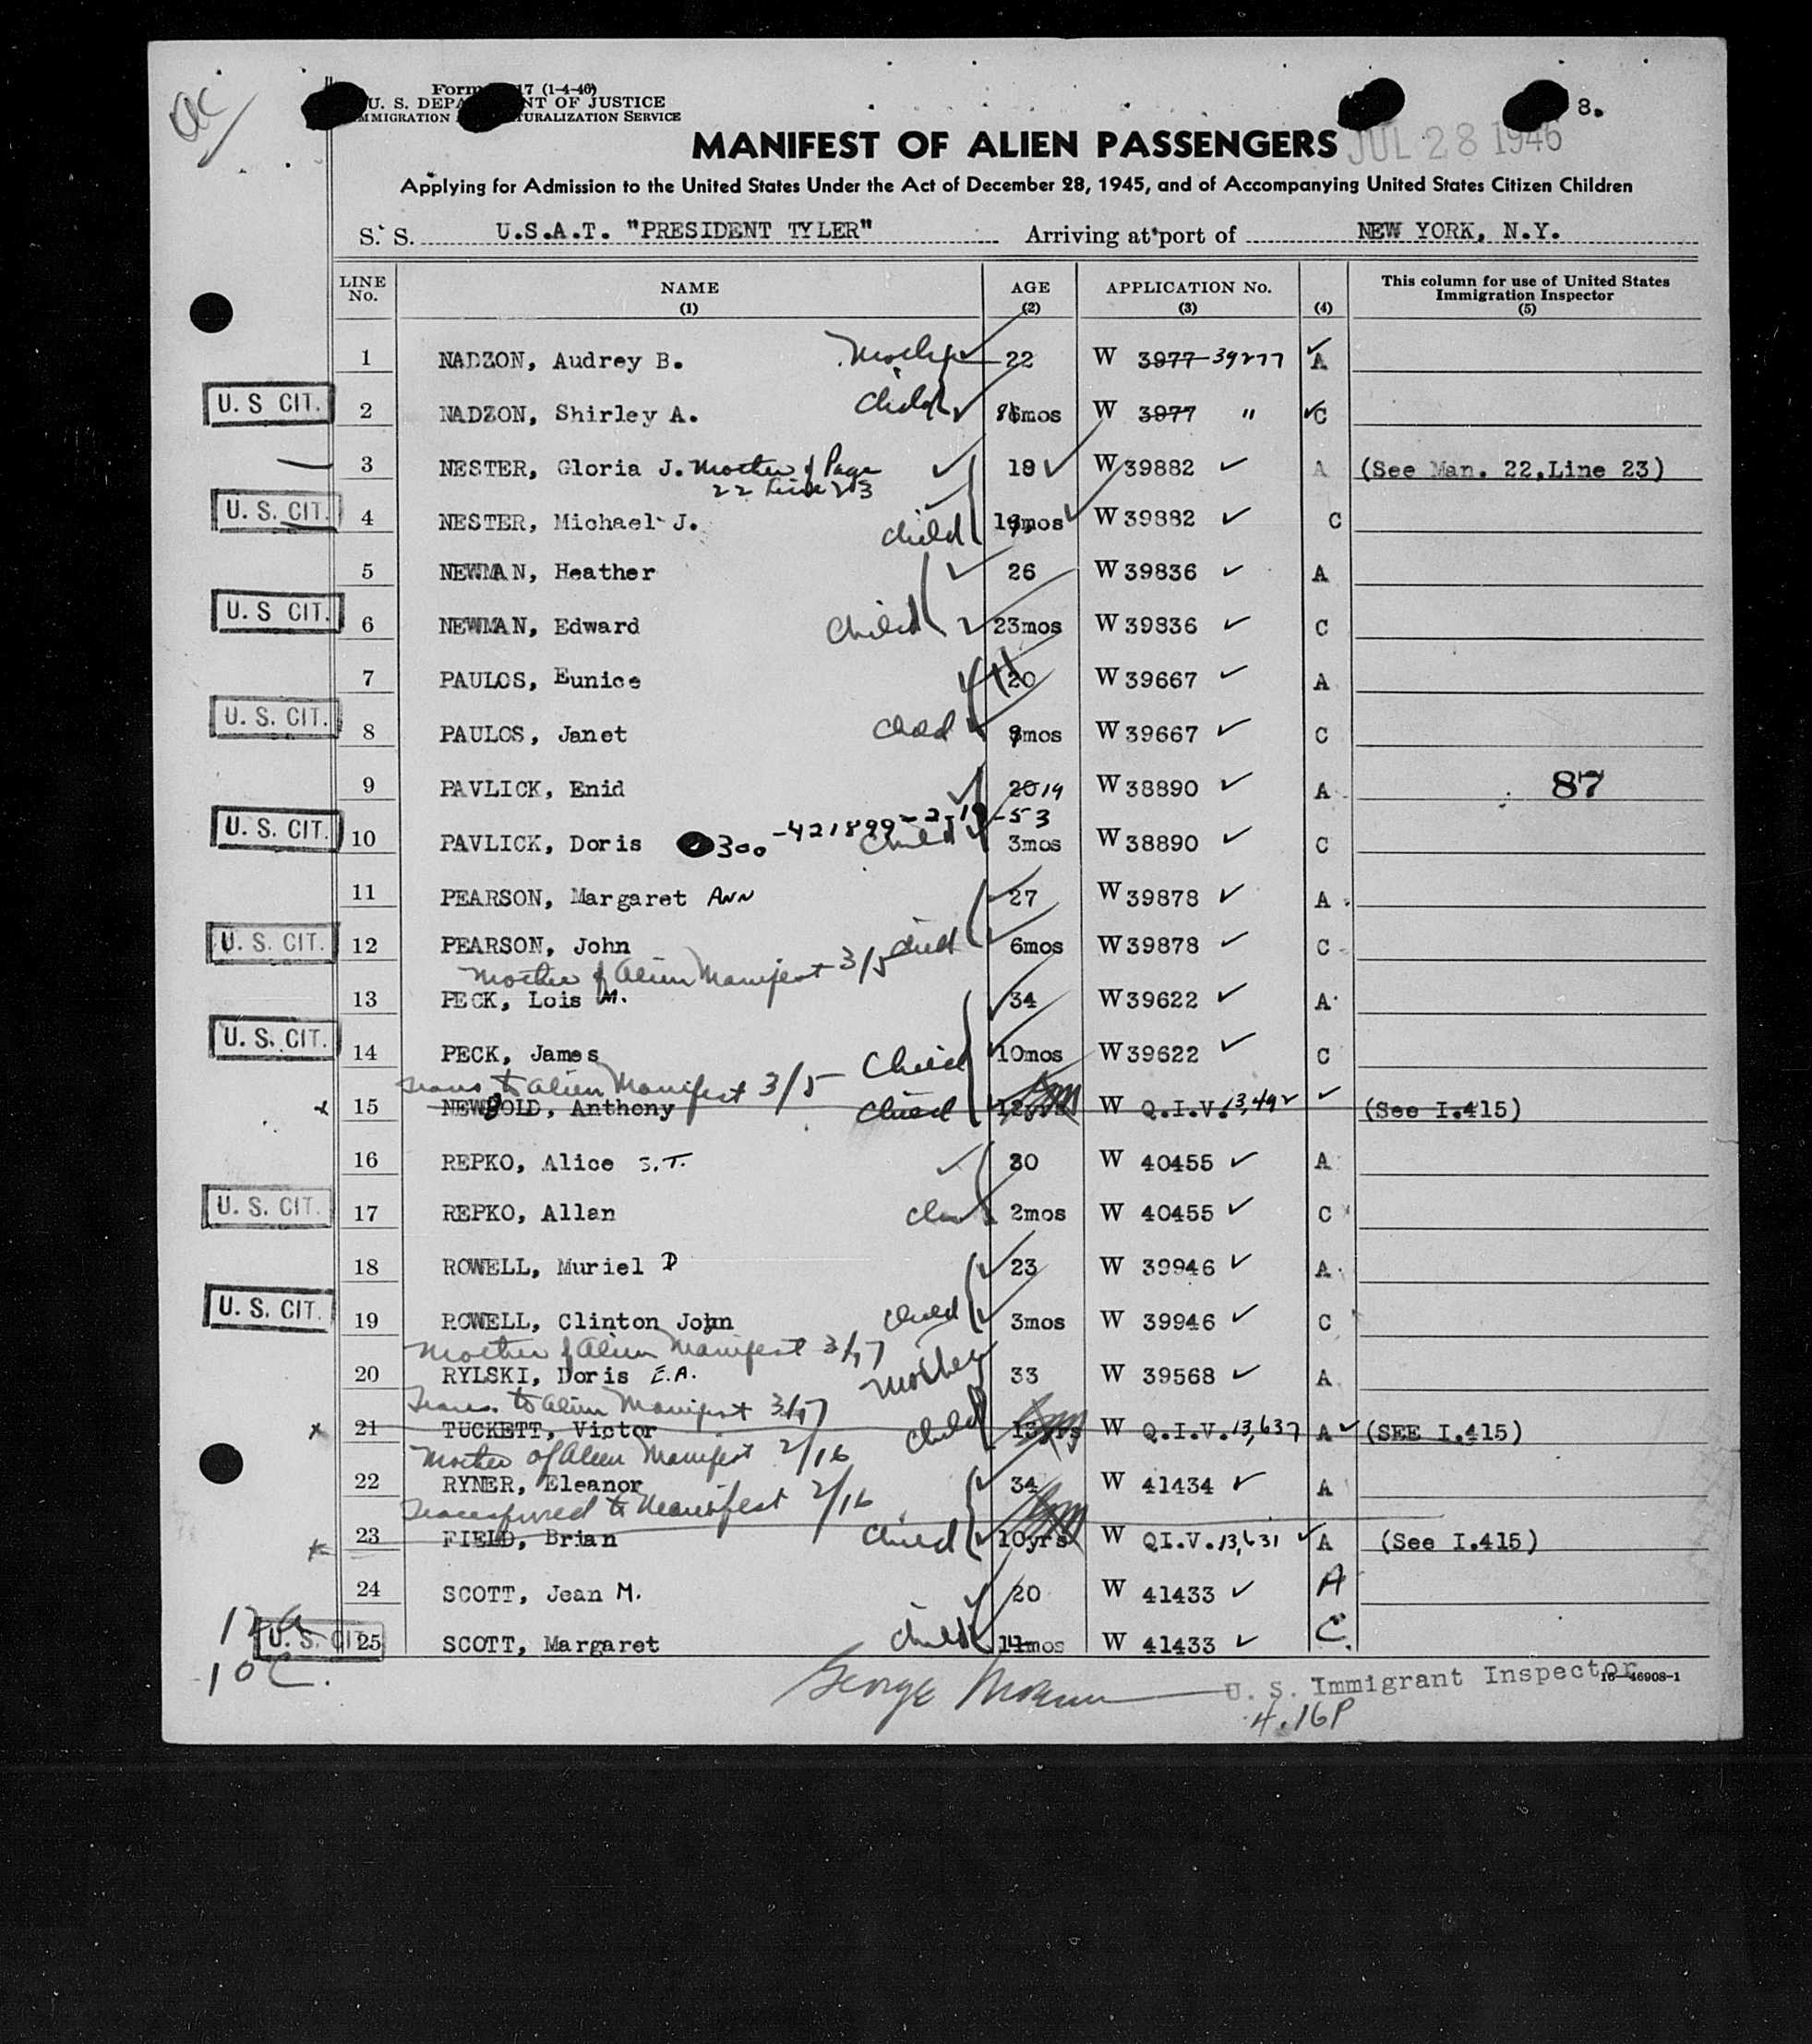 ac
Form 17 (1-4-46)
U. S. DEPA NT OF JUSTICE
IMMIGRATION TURALIZATION SERVICE
8.
MANIFEST OF ALIEN PASSENGERS JUL 28 1946
Applying for Admission to the United States Under the Act of December 28, 1945, and of Accompanying United States Citizen Children
S. S. U.S.A.T. "PRESIDENT TYLER" Arriving at port of NEW YORK, N.Y.
LINE No. NAME (1) AGE (2) APPLICATION No. (3) (4) This column for use of United States Immigration Inspector (5)
1 NADZON, Audrey B. Mother 22 W 3977 39277 A
U. S CIT. 2 NADZON, Shirley A. Child mos W 3977 " C
3 NESTER, Gloria J. Mother of Page 19 W 39882 A (See Man. 22,Line 23)
22 Line 23
U. S. CIT. 4 NESTER, Michael J. child mos W 39882 C
5 NEWMAN, Heather 26 W 39836 A
U. S CIT. 6 NEWMAN, Edward Child 23mos W 39836 C
7 PAULOS, Eunice 20 W 39667 A
U. S. CIT. 8 PAULOS, Janet Child mos W 39667 C
9 PAVLICK, Enid 20 19 W 38890 A 87
U. S. CIT. 10 PAVLICK, Doris 0300-421899-2-19-53 Child 3mos W 38890 C
11 PEARSON, Margaret ANN 27 W 39878 A
U. S. CIT. 12 PEARSON, John child 6mos W 39878 C
Mother of Alien Manifest 3/5
13 PECK, Lois M. 34 W 39622 A
U. S. CIT. 14 PECK, James Child 10mos W 39622 C
Trans to Alien Manifest 3/5
x 15 NEWBOLD, Anthony child 12yrs W Q.I.V. 13,492 (See I.415)
16 REPKO, Alice S.T. 30 W 40455 A
U. S. CIT. 17 REPKO, Allan 2mos W 40455 C
18 ROWELL, Muriel D 23 W 39946 A
U. S. CIT. 19 ROWELL, Clinton John child 3mos W 39946 C
Mother of Alien Manifest 3/17
20 RYLSKI, Doris E.A. Mother 33 W 39568 A
Trans. to Alien Manifest 3/17
x 21 TUCKETT, Victor child 13yrs W Q.I.V. 13,637 A (SEE I.415)
Mother of Alien Manifest 2/16
22 RYNER, Eleanor 34 W 41434 A
Transferred to Manifest 2/16
x 23 FIELD, Brian child 10yrs W QI.V. 13,631 A (See I.415)
24 SCOTT, Jean M. 20 W 41433 A
12 a U. S. CIT 25 SCOTT, Margaret child 11mos W 41433 C.
10 C.
George U. S. Immigrant Inspector 16—46908-1
4.16P